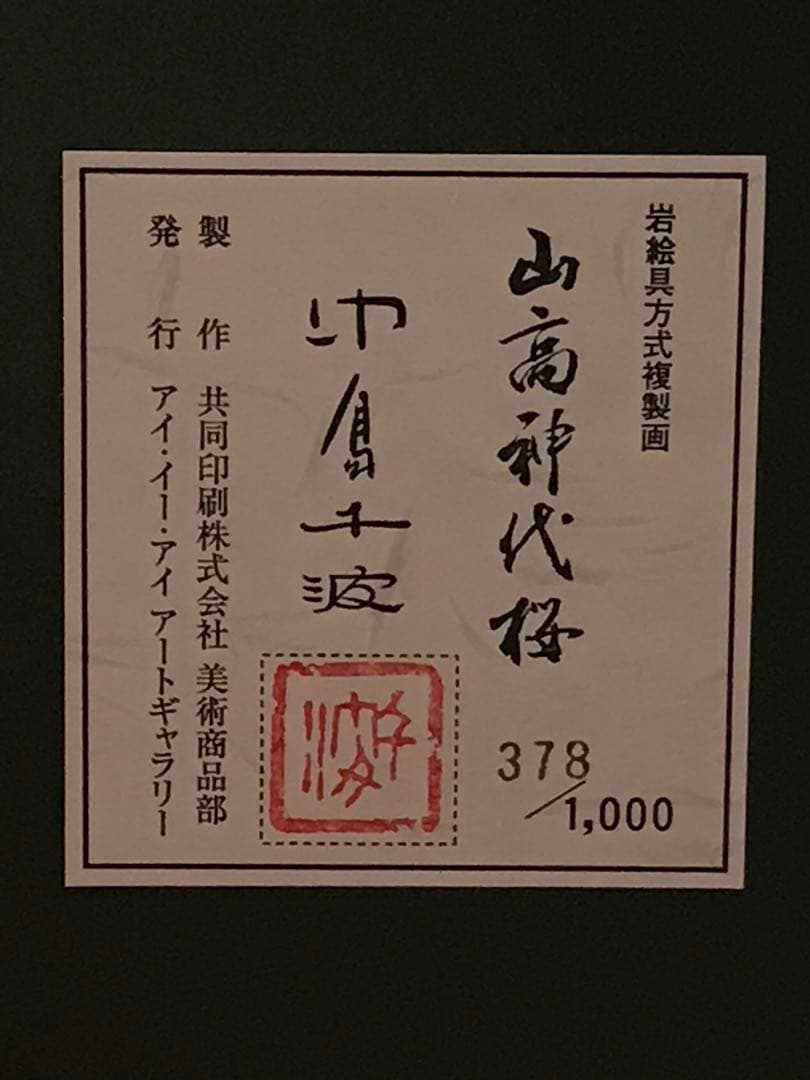 岩絵具方式複製画
山高神代桜
378/1,000
中島千波
製作 共同印刷株式会社 美術商品部
発行 アイ・イー・アイ アートギャラリー